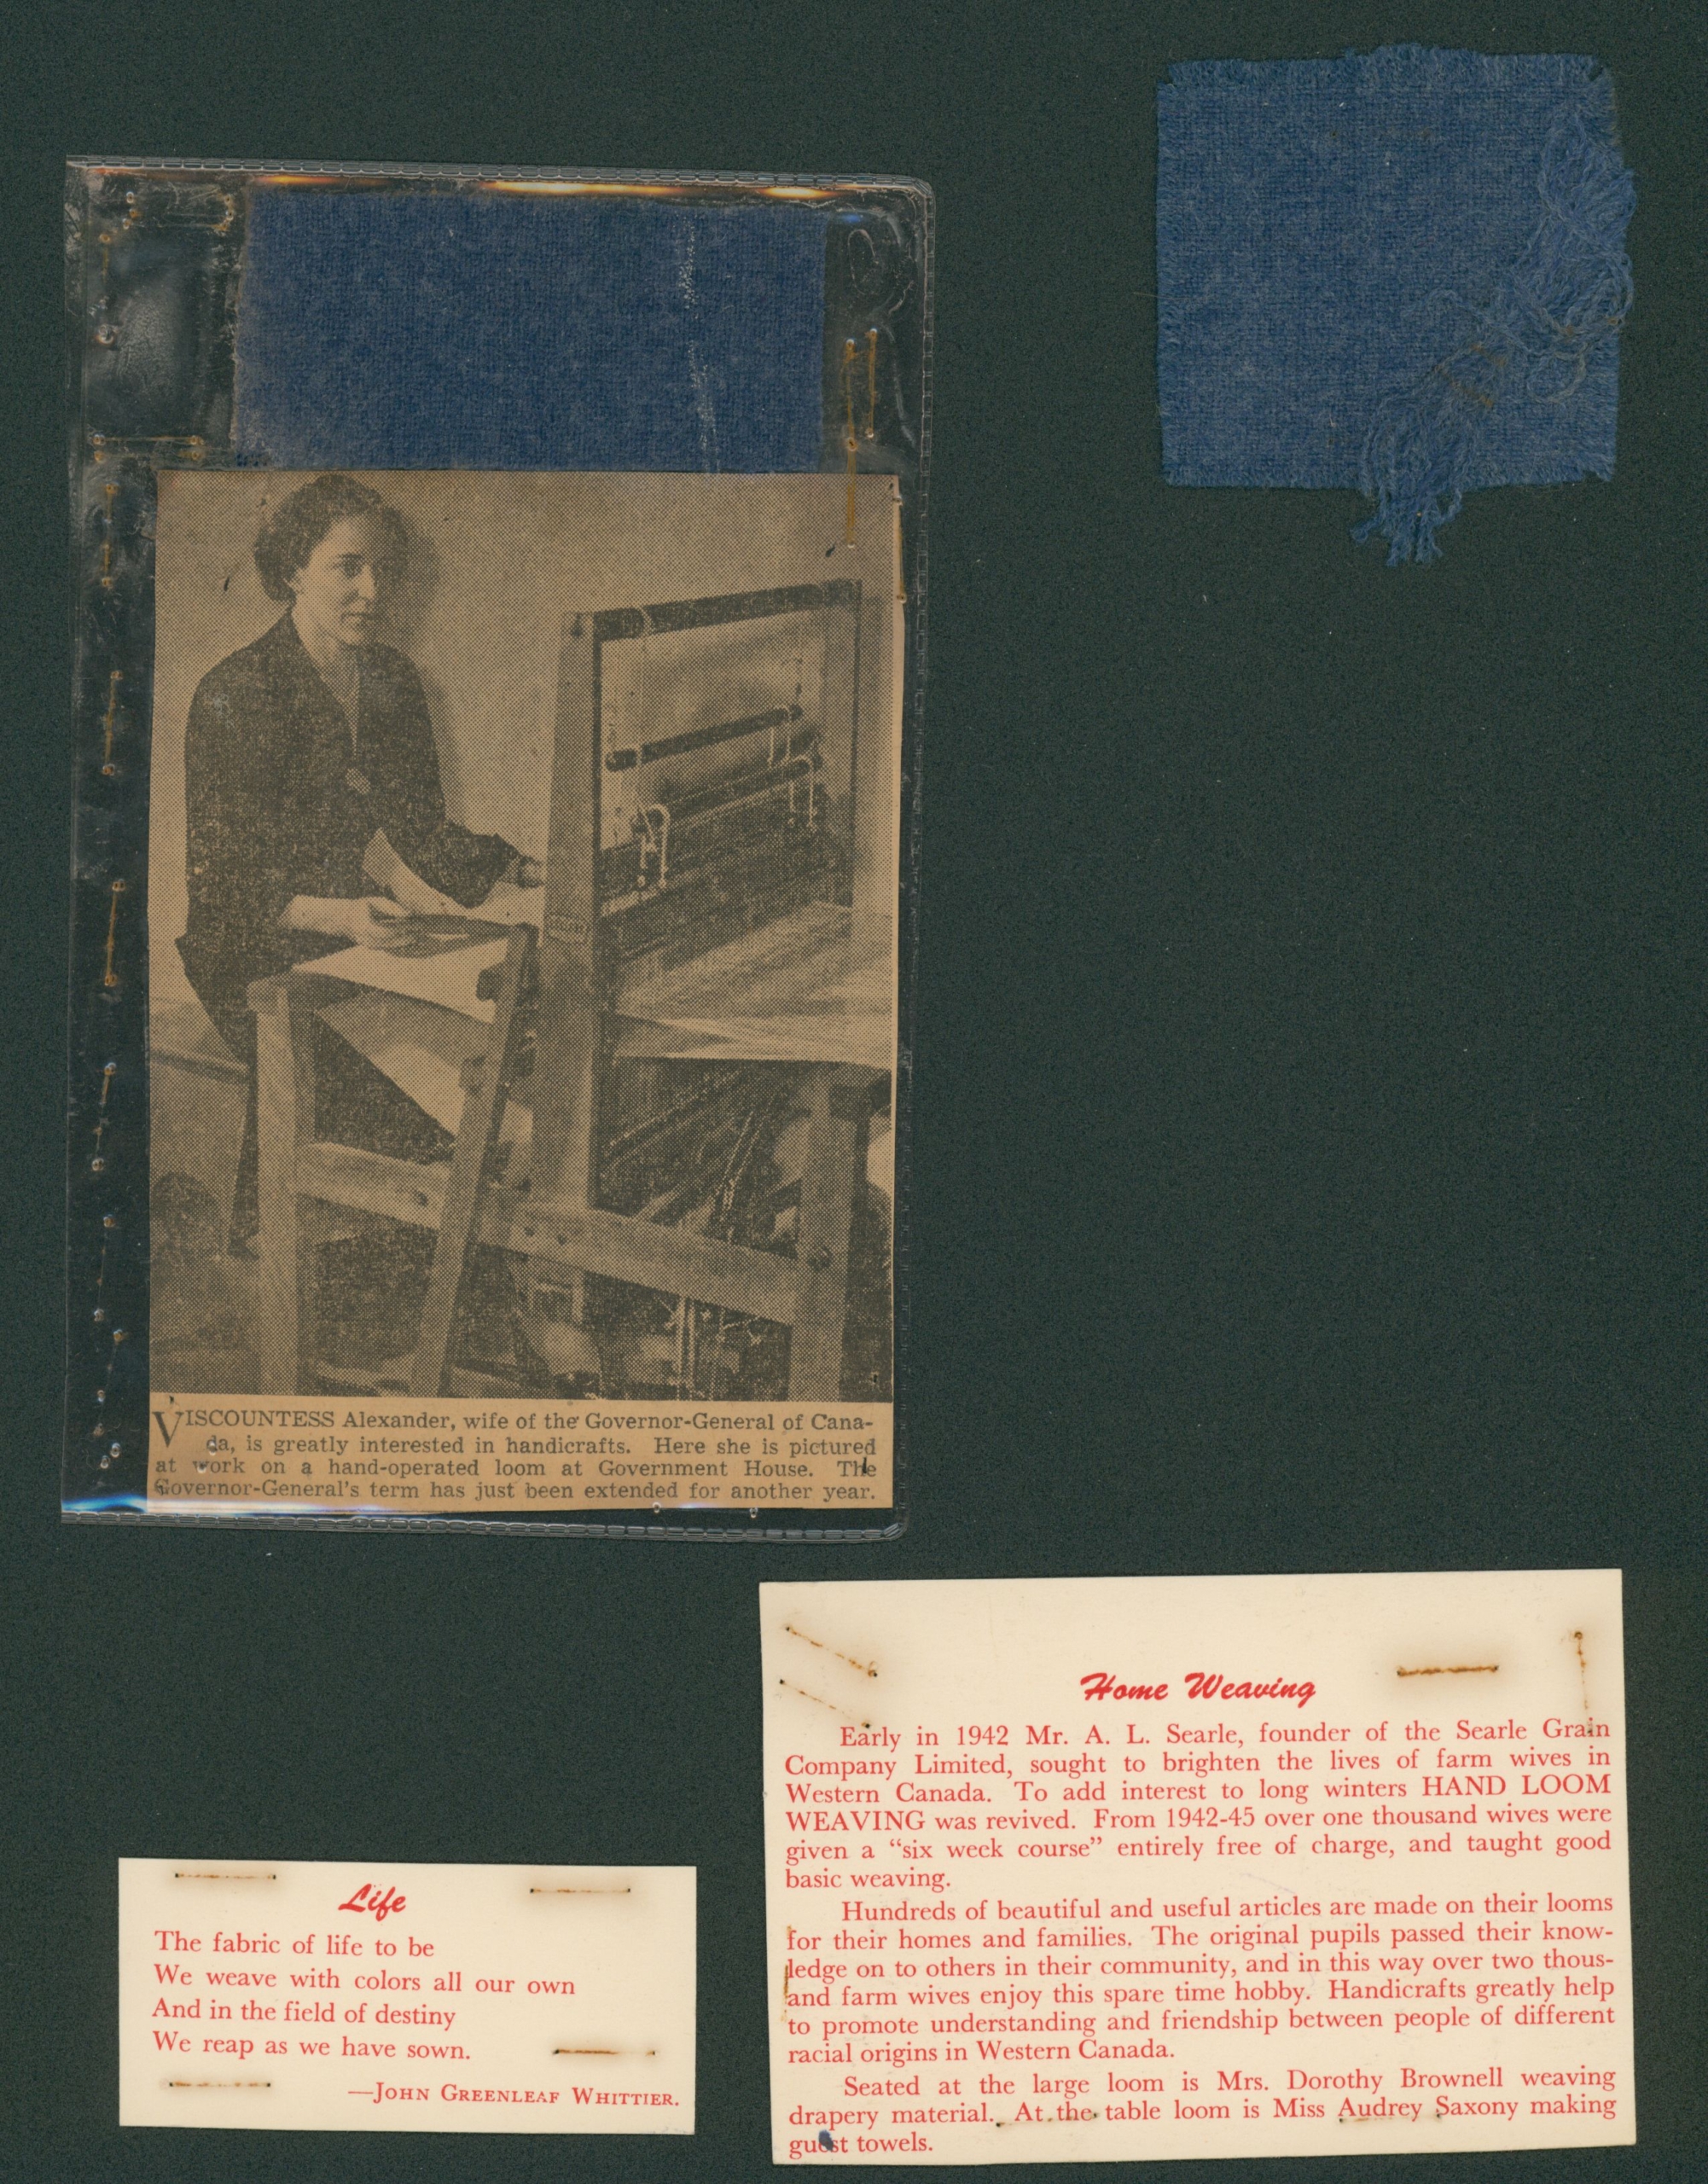 VISCOUNTESS Alexander, wife of the Governor-General of Cana-
da, is greatly interested in handicrafts. Here she is pictured
at work on a hand-operated loom at Government House. The
Governor-General's term has just been extended for another year.
Life
The fabric of life to be
We weave with colors all our own
And in the field of destiny
We reap as we have sown.
—JOHN GREENLEAF WHITTIER.
Home Weaving
Early in 1942 Mr. A. L. Searle, founder of the Searle Grain
Company Limited, sought to brighten the lives of farm wives in
Western Canada. To add interest to long winters HAND LOOM
WEAVING was revived. From 1942-45 over one thousand wives were
given a “six week course” entirely free of charge, and taught good
basic weaving.
Hundreds of beautiful and useful articles are made on their looms
for their homes and families. The original pupils passed their know-
ledge on to others in their community, and in this way over two thous-
and farm wives enjoy this spare time hobby. Handicrafts greatly help
to promote understanding and friendship between people of different
racial origins in Western Canada.
Seated at the large loom is Mrs. Dorothy Brownell weaving
drapery material. At the table loom is Miss Audrey Saxony making
guest towels.